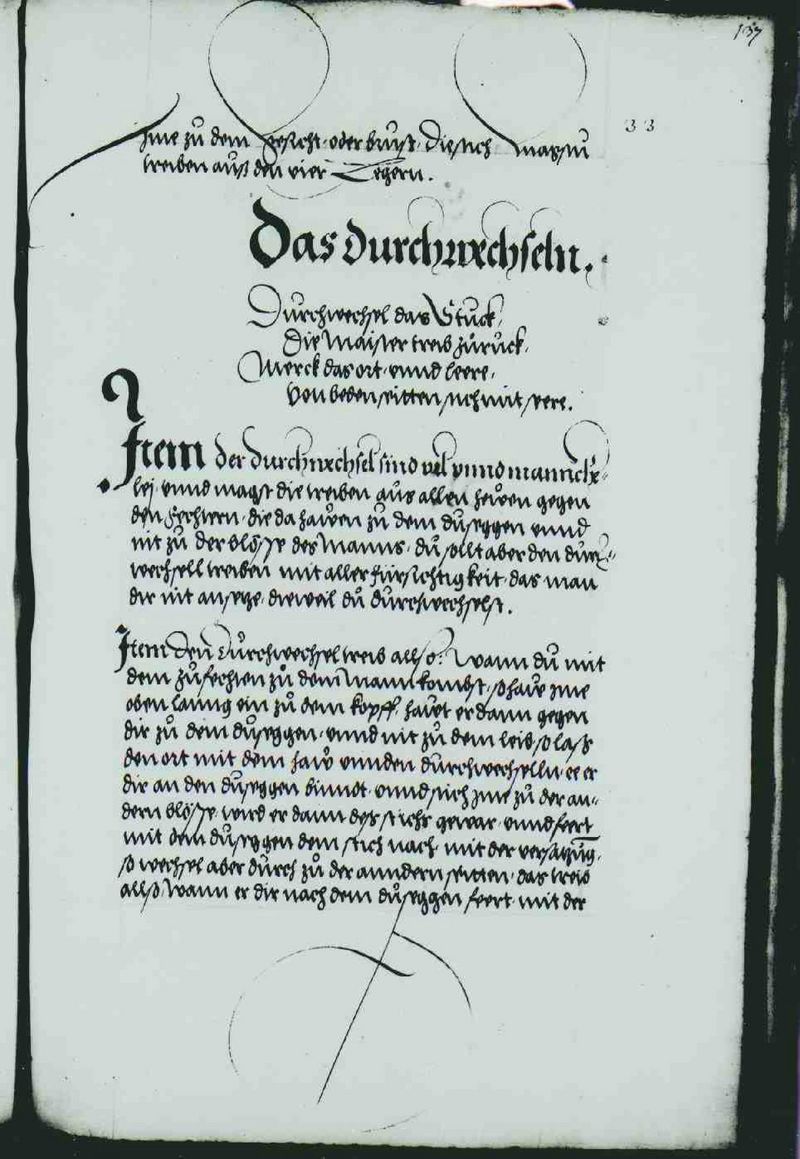 137
33
Ime zů dem gesicht oder brust, die stich magstu
treiben auß den vier Legern.
Das durchwechseln.
Durchwechsel das Stuck,
Die Maister treib zůruck,
Merck das ort vnnd leere,
Von beden seitten sich mit sere.
Item der durchwechsel sind vil vnnd mannicher-
lej, vnnd magst die treiben aus allen hewen gegen
den fechtern, die da hawen zů dem duseggen vnnd
nit zů der blösse des Manns, du sollt aber den durch-
wechsell treiben mit aller fürsichtigkeit, das man
dir nit ansetze, dieweil du durchwechselst.
Item den durchwechsel treib allso: Wann du mit
dem zůfechten zů dem Mann kombst, so haw ime
oben lanng ein zů dem kopff, hawt er dann gegen
dir zů dem dusseggen vnnd nit zů dem leib, so laß
den ort mit dem haw vnnden durchwechselln, ee er
dir an den duseggen bindt, vnnd stich ime zů der an-
dern blösse, wird er dann des stichs gewar, vnnd feert
mit dem dusseggen dem stich nach mit der versatzung,
so wechsel aber durch zů der anndern seitten, das treib
allso Wann er dir nach dem duseggen feert mit der